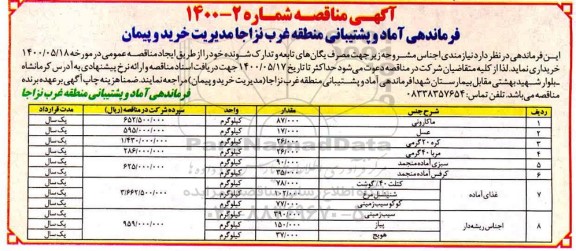 آگهی مناقصه شماره ۲-۱۴۰۰
فرماندهی آماد و پشتیبانی منطقه غرب نزاجا مدیریت خرید و پیمان
این فرماندهی در نظر دارد نیازمندی اجناس مشروحه زیر جهت مصرف یگان‌های تابعه و تدارک شونده خود را از طریق ایجاد مناقصه عمومی در مورخه ۱۴۰۰/۰۵/۱۸
خریداری نماید. لذا از کلیه متقاضیان شرکت در مناقصه دعوت می‌شود حداکثر تا تاریخ ۱۴۰۰/۰۵/۱۷ جهت دریافت اسناد مناقصه و ارائه نرخ پیشنهادی به آدرس کرمانشاه
بلوار شهید بهشتی مقابل بیمارستان شهدا فرماندهی آماد و پشتیبانی منطقه غرب نزاجا (مدیریت خرید و پیمان) مراجعه نمایند. ضمنا هزینه چاپ آگهی برعهده برنده
مناقصه می‌باشد. تلفن تماس: ۰۸۳۳۸۳۵۷۶۵۴
فرماندهی آماد و پشتیبانی منطقه غرب نزاجا
ردیف شرح جنس مقدار واحد سپرده شرکت در مناقصه (ریال) مدت قرارداد
۱ ماکارونی ۸۷/۰۰۰ کیلوگرم ۶۵۲/۵۰۰/۰۰۰ یک‌سال
۲ عسل ۱۷/۰۰۰ کیلوگرم ۵۹۵/۰۰۰/۰۰۰ یک‌سال
۳ کره ۲۰ گرمی ۲۶/۰۰۰ کیلوگرم ۱/۴۳۰/۰۰۰/۰۰۰ یک‌سال
۴ مربا ۳۰ گرمی ۲۶/۰۰۰ کیلوگرم ۲۸۶/۰۰۰/۰۰۰ یک‌سال
۵ سبزی آماده منجمد ۹۰/۰۰۰ کیلوگرم ۶۲۵/۰۰۰/۰۰۰ یک‌سال
۶ کرفس آماده منجمد ۳۵/۰۰۰ کیلوگرم یک‌سال
۷ غذای آماده کتلت ۴۰٪ گوشت ۷۸/۰۰۰ کیلوگرم ۳/۶۶۲/۵۰۰/۰۰۰ یک‌سال
شنسل مرغ ۱۰۲/۰۰۰ کیلوگرم یک‌سال
کوکو سیب‌زمینی ۷۷/۰۰۰ کیلوگرم یک‌سال
۸ اجناس ریشه‌دار سیب‌زمینی ۳۹۰/۰۰۰ کیلوگرم ۹۵۹/۰۰۰/۰۰۰ یک‌سال
پیاز ۱۵۰/۰۰۰ کیلوگرم یک‌سال
هویج ۳۷/۰۰۰ کیلوگرم یک‌سال